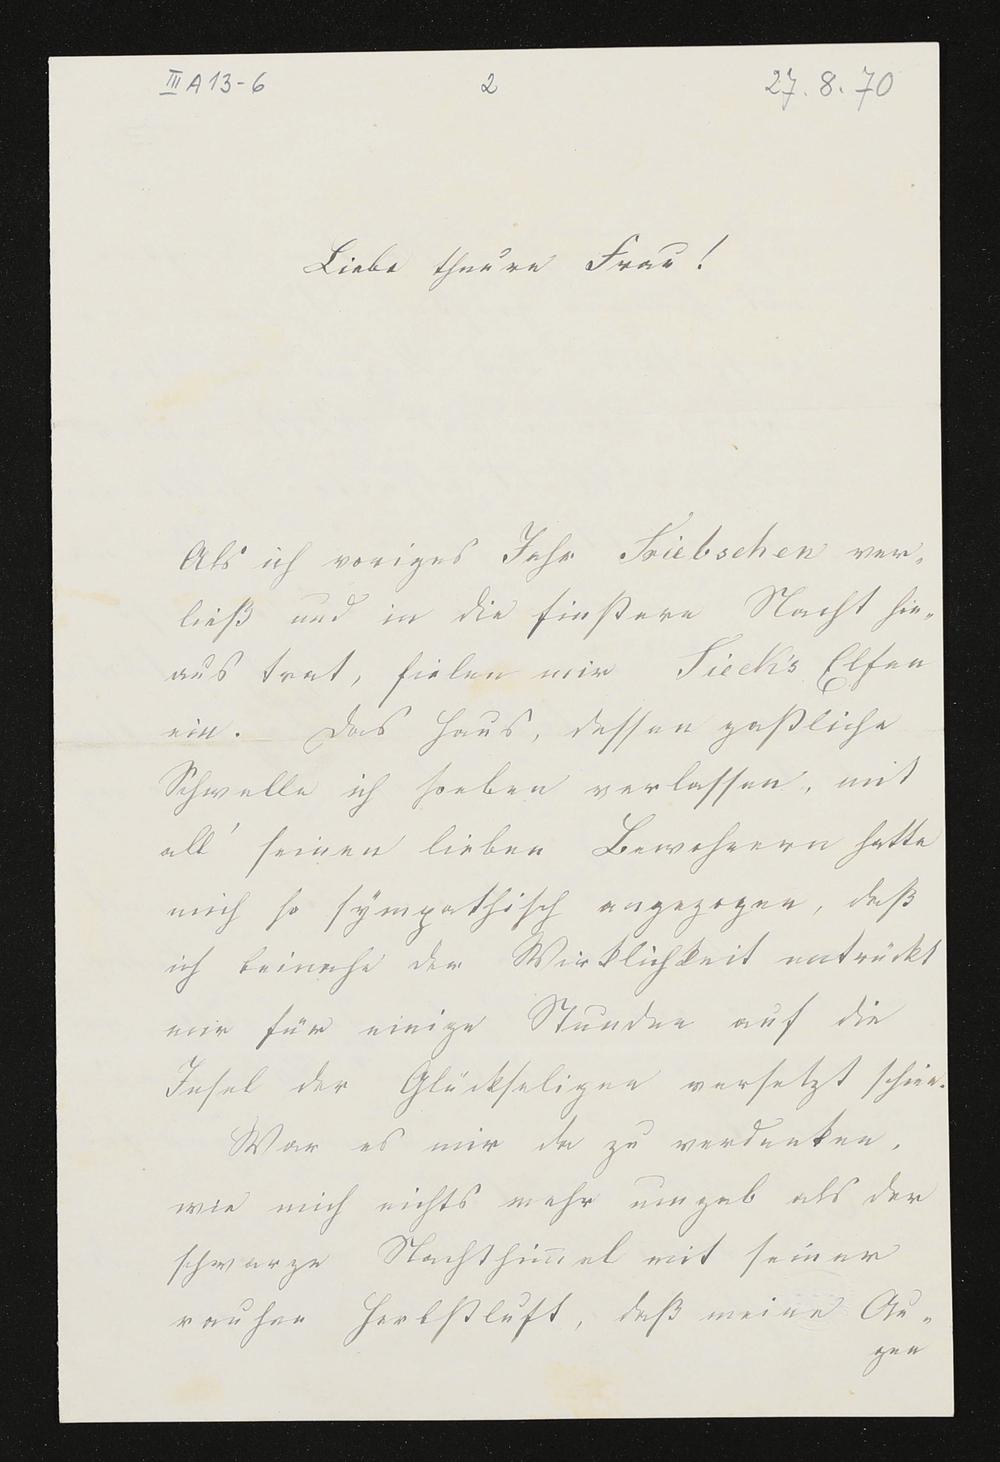 III A 13-6 2 27.8.70
Liebe theure Frau!
Als ich voriges Jahr Triebschen ver-
ließ und in die finstere Nacht hin-
aus trat, fielen mir Tieck's Elfen
ein. Das Haus, dessen gastliche
Schwelle ich soeben verlassen, mit
all' seinen lieben Bewohnern hatte
mich so sÿmpathisch angezogen, daß
ich beinahe der Wirklichkeit entrückt
mir für einige Stunden auf die
Insel der Glückseligen versetzt schien.
War es mir da zu verdenken,
wie mich nichts mehr umgab als der
schwarze Nachthim̅el mit seiner
rauhen Herbstluft, daß meine Au-
gen